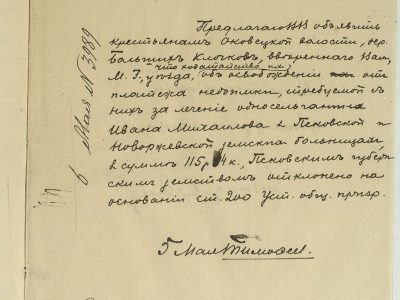 Предлагаю В.В. объявить
крестьянамъ Оковецкой волости, дер.
Большихъ Клочковъ, ввѣреннаго Вам,
М. Г., уѣзда, что ходатайство их
объ освобожденіи отъ
платежа недоимки, требуемой съ
нихъ за леченіе односельчанина
Ивана Михайлова въ Псковской и
Новоржевской земскихъ больницахъ
въ суммѣ 115 р. 4 к., Псковскимъ губерн-
скимъ земствомъ отклонено на
основаніи ст. 200 Уст. общ. призр.
5 Мая
6 Мая N 3989